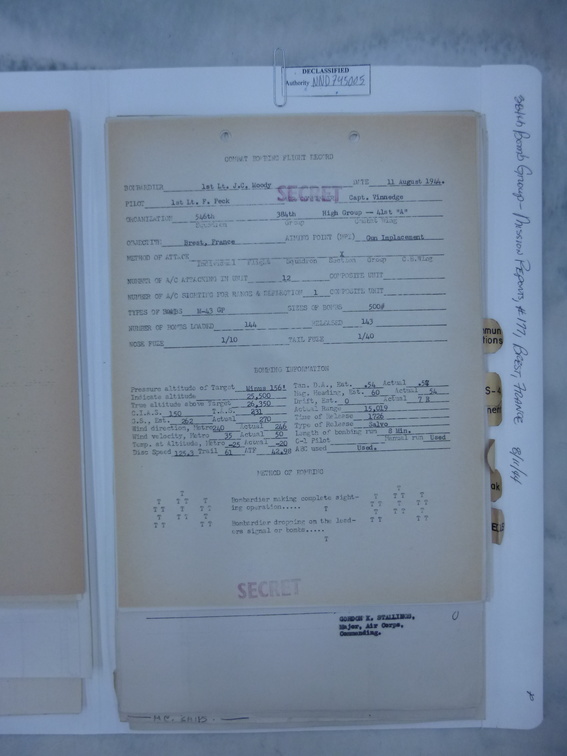 DECLASSIFIED
Authority NND 745005
384th Bomb Group - Mission Reports, # 177, Brest, France 8/11/44
COMBAT BOMBING FLIGHT RECORD
BOMBARDIER 1st Lt. J.C. Moody DATE 11 August 1944.
SECRET
PILOT 1st Lt. F. Feck Capt. Vinnedge
ORGANIZATION 546th 384th High Group -- 41st "A"
Squadron Group Combat Wing
OBJECTIVE Brest, France AIMING POINT (MPI) Gun Implacement
METHOD OF ATTACK X
Individual Flight Squadron Section Group C.B.Wing
NUMBER OF A/C ATTACKING IN UNIT 12 COMPOSITE UNIT
NUMBER OF A/C SIGHTING FOR RANGE & DEFLECTION 1 COMPOSITE UNIT
TYPES OF BOMBS M-43 GP SIZES OF BOMBS 500#
NUMBER OF BOMBS LOADED 144 RELEASED 143
NOSE FUZE 1/10 TAIL FUZE 1/40
BOMBING INFORMATION
Pressure altitude of Target Minus 156' Tan. D.A., Est. .54 Actual
Indicate altitude 25,500 Mag. Heading, Est. 60 Actual 54
True altitude above Target 26,350 Drift, Est. 0 Actual 7 R
C.I.A.S. 150 T.A.S. 231 Actual Range 15,019
G.S., Est. 262 Actual 270 Time of Release 1726
Wind direction, Metro 240 Actual 246 Type of Release Salvo
Wind velocity, Metro 35 Actual 50 Length of bombing run 8 Min.
Temp. at Altitude, Metro -25 Actual -20 C-1 Pilot Manual run Used
Disc Speed 125.3 Trail 61 ATF 42.98 ABC used Used.
METHOD OF BOMBING
T T
T T T T T T T T
T T T Bombardier making complete sight- T T T
T T T T ing operation..... T T T T T
T T T T
T T T T Bombardier dropping on the lead- T T T T
ers signal or bombs.....
T
SECRET
GORDON K. STALLINGS, 0
Major, Air Corps,
Commanding.